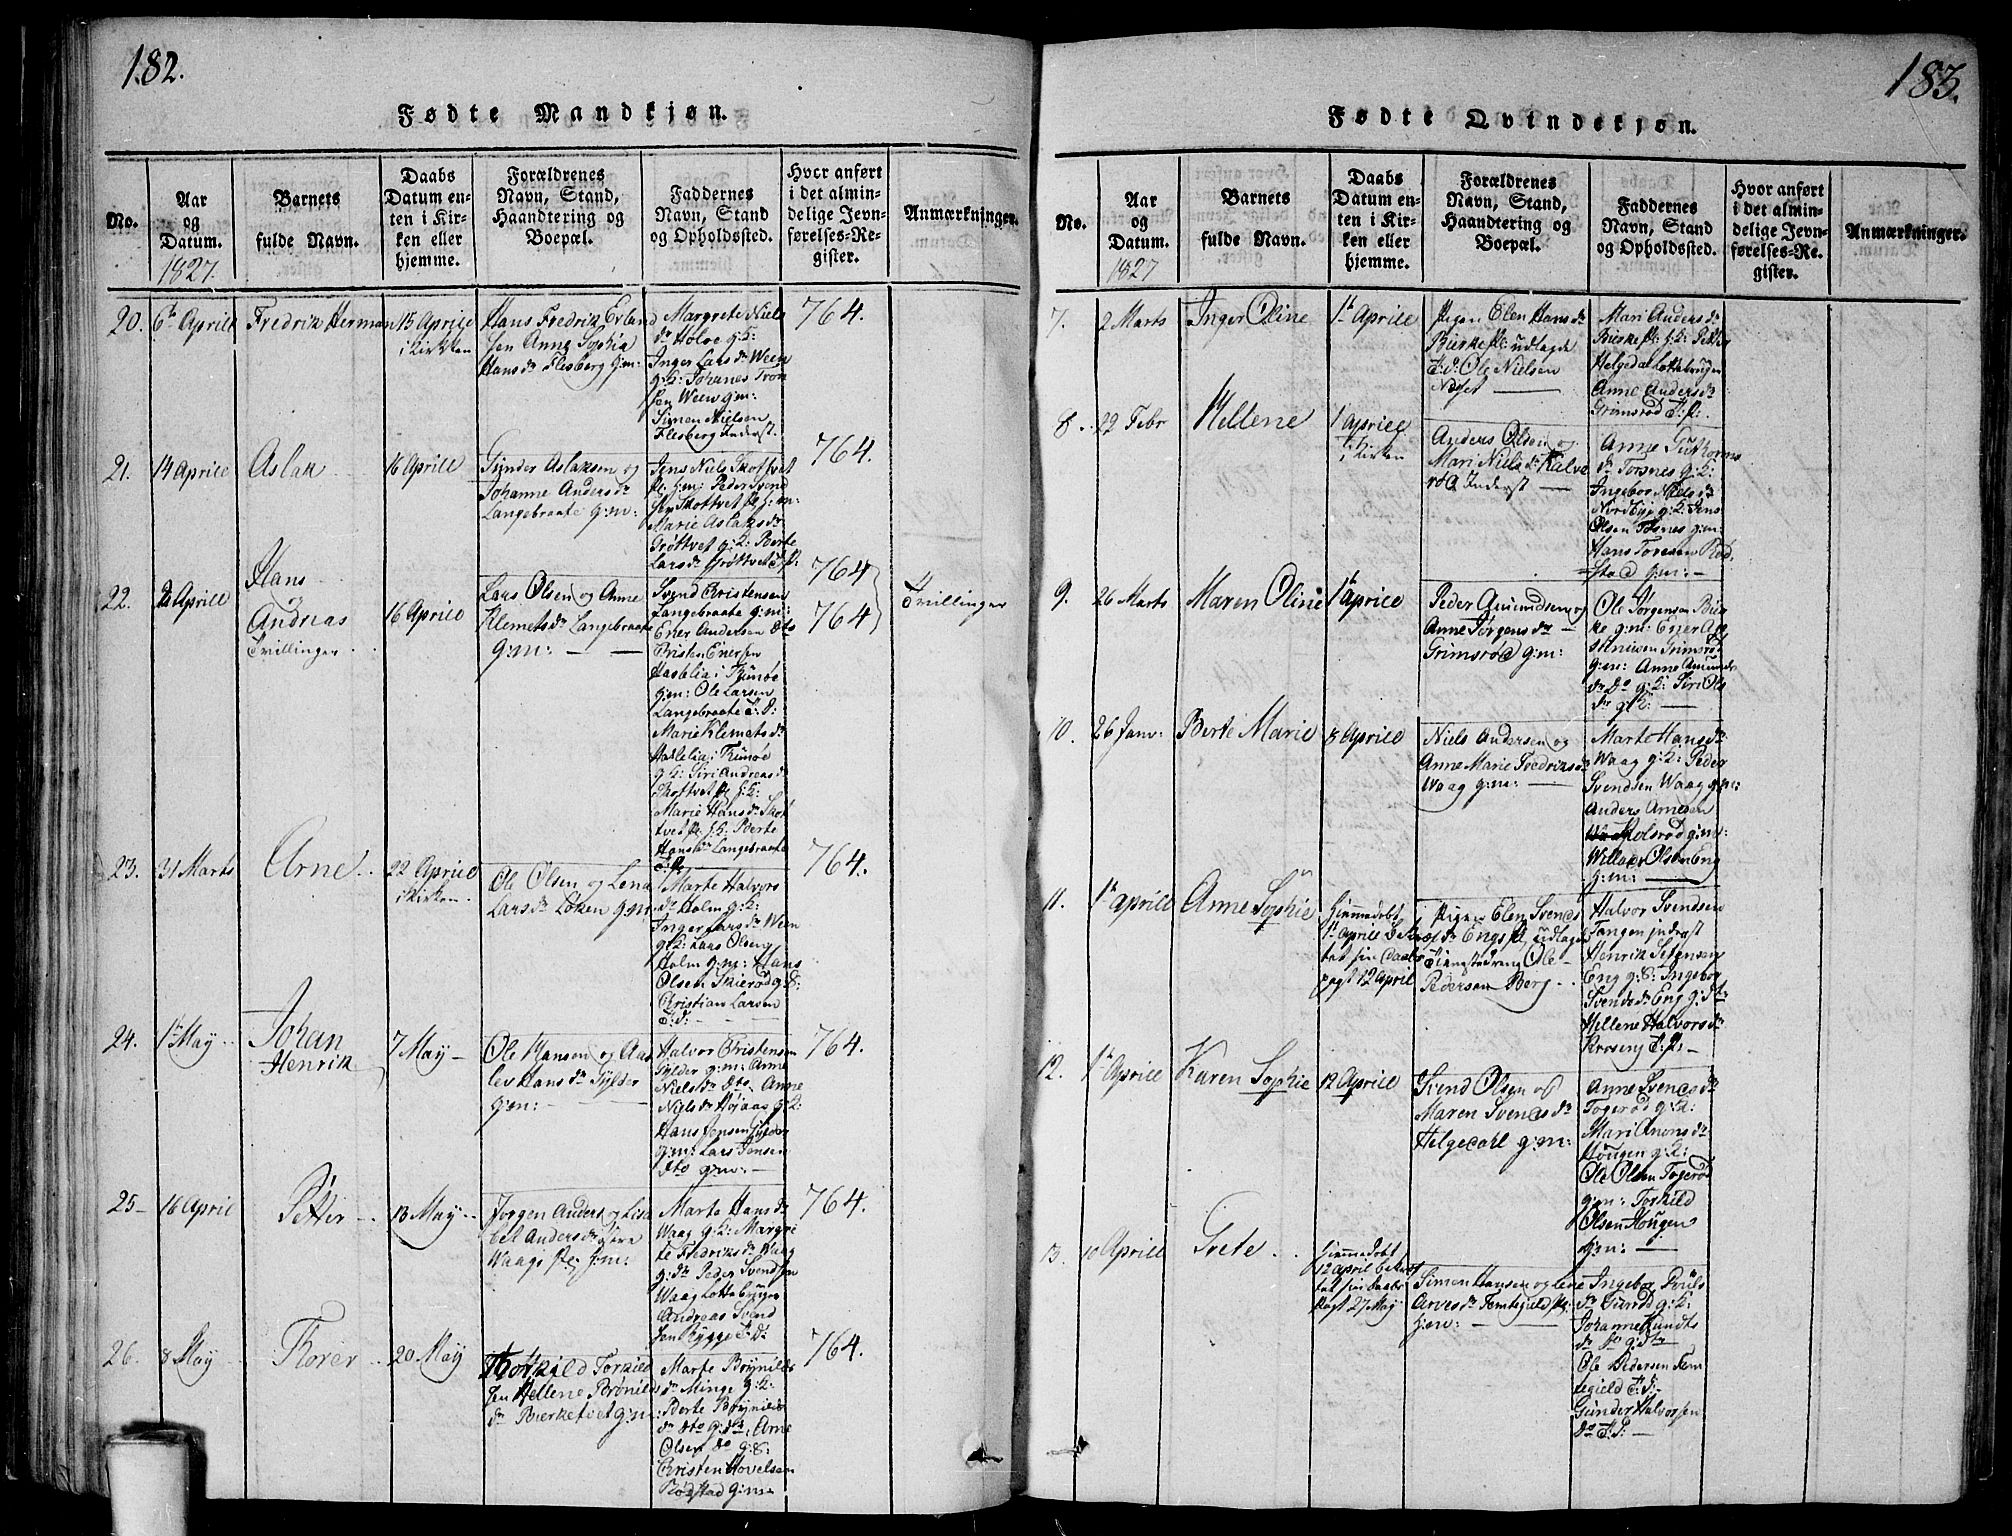 182.
Fødte Mandkjøn.
No.
Aar
og
Datum.
1827.
Barnets
fulde Navn.
Daabs
Datum en-
ten i Kir-
ken eller
hjemme.
Forældrenes
Navn, Stand,
Haandtering og
Boepæl.
Faddernes
Navn, Stand
og Opholdssted.
Hvor anført
i det almin-
delige Jevn-
førelses-Re-
gister.
Anmærkninger.
20.
6te Aprill
Fredrik Herman
15 Aprill
i Kirken
Hans Fredrik Erland
sen Anne Sophia
Hans dr Flesberg g:m:
Margrete Niels
dr Holve g:K:
Inger Lars dr Ween
g:K: Johanes Tron
sen Ween g:m:
Simen Nielsen
Flesberg Inderst.
764.
21.
14 Aprill
Aslak
16 Aprill
Gunder Aslaksen og
Johanne Anders dr
Langebraate g:m:
Jens Niels Skottvet
pl: g:m: Peder Svend
sen Skottvet pl: g:m:
Marie Aslaks dr
Grøttvet g:K: Berte
Lars dr Grøttvet T:P:
764.
22.
Aprill
Hans
og
Andreas
Tvillinger
16 Aprill
Lars Olsen og Anne
Klemets dr Langebraate
g:m:
Svend Cristensen
Langebraate g:m:
Ener Andersen dto
Cristen Enersen
Haslelia i Tunøe
g:m: Ole Larsen
Langebraate T:D:
Marie Klemets dr
Haslelia i Tunøe
g:K: Siri Andreas dr
Skottvet pl: g:K:
Marie Hans dr Skøt
tvet pl: g:K: Berte
Hans dr Langebraate
T:P:
764
764
Tvillinger
23.
31 Marts
Arne
22 Aprill
i Kirken.
Ole Olsen og Lena
Lars dr Løken g:m:
Marte Halvors
dr Holm g:K:
Inger Lars dr Ween
g:K: Lars Olsen
Holm g:m: Hans
Olsen Skierød g:K:
Christian Larsen
T:d:
764.
24.
1te May
Johan
Henrik
7 May
Ole Hansen og Aas
lev Hans dr Gylder
g:m:
Halvor Cristensen
Gylder g:m: Anne
Niels dr dto Anne
Niels dr Højaas g:K:
Hans Jensen Gylder
g:m: Lars Jensen
dto g:m:
764.
25
16 April
Petter
13 May
Jørgen Anders og Lisa
bet Anders dr
Waags pl: g:m:
Marte Hans dr
Waag g:K: Margre
te Fredriks dr Waag
g:dr Peder Svendsen
Waag Lottebruger
Andreas Svend
sen Rygge T:d:
764.
26.
8 May
Thorer
20 May
Thorkild Torkild
sen Hellene Brønilds
dr Bierketvet g:m:
Marte Brynilds
dr Minge g:K:
Berte Brynilds
dr dto g:dr: Arne
Olsen do g:K:
Christen Hovelsen
Rødstad g:m:
764.
183.
Fødte Qvindekjøn.
No.
Aar
og
Datum.
1827
Barnets
fulde Navn.
Daabs
Datum en-
ten i Kir-
ken eller
hjemme.
Forældrenes
Navn, Stand,
Haandtering og
Boepæl.
Faddernes
Navn, Stand
og Opholdssted.
Hvor anført
i det almin-
delige Jevn-
førelses-Re-
gister.
Anmærkninger.
7.
2 Marts
Inger Oline
1te Aprill
Pigen Elen Hans dr
Bierke pl: udlagde
T:d: Ole Nielsen
Næset
Mari Anders dr
Bierke pl: g:K: Petter
Helgedal Lottebruger
Anne Anders dr
Grimsrød T:P:
8.
22 Febr
Hellene
1 Aprill
i Kirken
Anders Olsen og
Mari Niels dr Kalve
rød Inderst
Anne Guthorms
dr Torsnes g:K:
Ingebor Niels dr
Nordbye g:K: Jens
Olsen Torsnes g:m:
Hans Toresen Rød
stad g:m:
9.
26 Marts
Maren Oline
1te Aprill
Peder Amundsen og
Anne Jørgens dr
Grimsrød g:m:
Ole Jørgensen Bier
ke g:m: Ener An
Grimsrød
g:m: Anne Amunds
dr Do g:K: Siri Ols
dr g:K:
10.
26 Janv:
Berte Marie
8 Aprill
Niels Andersen og
Anne Marie Fredriks dr
Waag g:m:
Marte Hans dr
Waag g:K: Peder
Svendsen Waag g:m:
Anders Arnesen
Holsrød g:m:
Willas Olsen Eng
g:m:
11.
1te aprill
Anne Sophie
Hjemmedøbt
1te Aprill bekref
tet sin daabs
pagt 12 April
Pigen Elen Svends
dr Engs pl: udlagde
Tienestedreng Ole
Pedersen Berg
Halvor Svendsen
Tangen inderst
Henrik Petersen
Eng g:K: Ingebor
Svends dr Eng g:dr
Hellene Halvors dr
Kroseng T:P:
12.
1te Aprill
Karen Sophie
12 Aprill
Svend Olsen og
Maren Svends dr
Helgedahl g:m:
Anne Svends dr
Togerød g:K:
Mari Anons dr
Hougen g:K:
Ole Olsen Togerød
g:m: Torkild
Olsen Hougen
g:m:
13.
10 Aprill
Grete
Hjemmedøbt
12 april bekref
tet sin daabs
pagt 27 May
Simon Hansen og Lene
Arves dr Femtegield pl:
g:m:
Ingebor Pouls
dr Sunrød g:K:
Johanne Gundts
dr do g:dr
Ole Pedersen Fem
tegield T:d:
Gunder Halvorsen
do T:P: